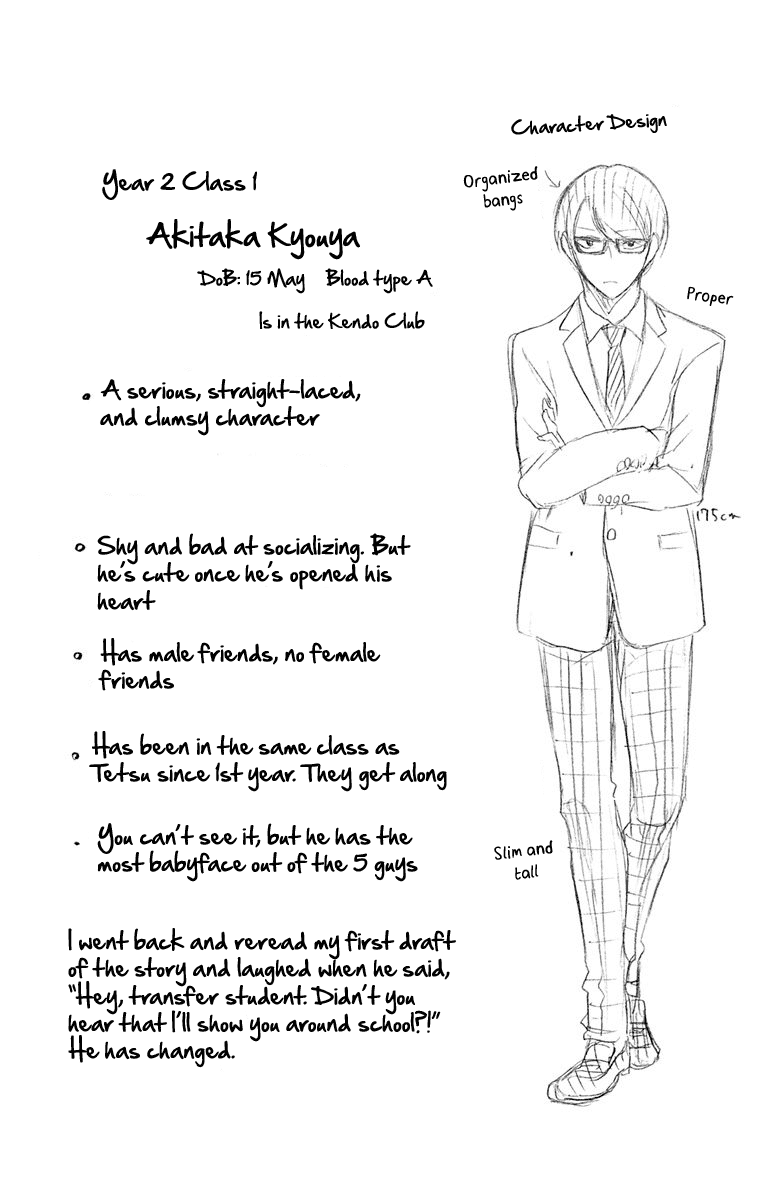 Character Design
Organized
bangs
Proper
175cm
Slim and
tall
Year 2 Class 1
Akitaka Kyouya
DoB: 15 May Blood type A
Is in the Kendo Club
A serious, straight-laced,
and clumsy character
Shy and bad at socializing. But
he's cute once he's opened his
heart
Has male friends, no female
friends
Has been in the same class as
Tetsu since 1st year. They get along
You can't see it, but he has the
most babyface out of the 5 guys
I went back and reread my first draft
of the story and laughed when he said,
"Hey, transfer student. Didn't you
hear that I'll show you around school?!"
He has changed.